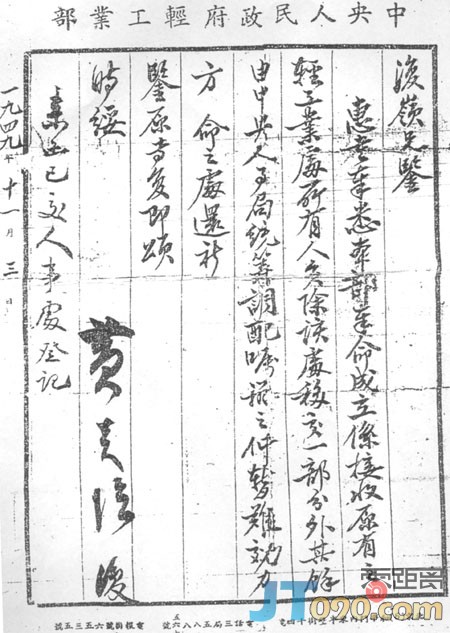 中央人民政府輕工業部
嶺兄鑒
惠書奉悉本部奉命成立係接收原有之
輕工業處所有人員除該處移交一部分外其餘
由中央人事局統籌調配囑之件難效力
方命之處還祈
鑒原專复即頌
時綏
黃炎培復
來函已交人事處登記
一九四九年十一月三日
電報掛號六五三五號
零距离
JT090.com